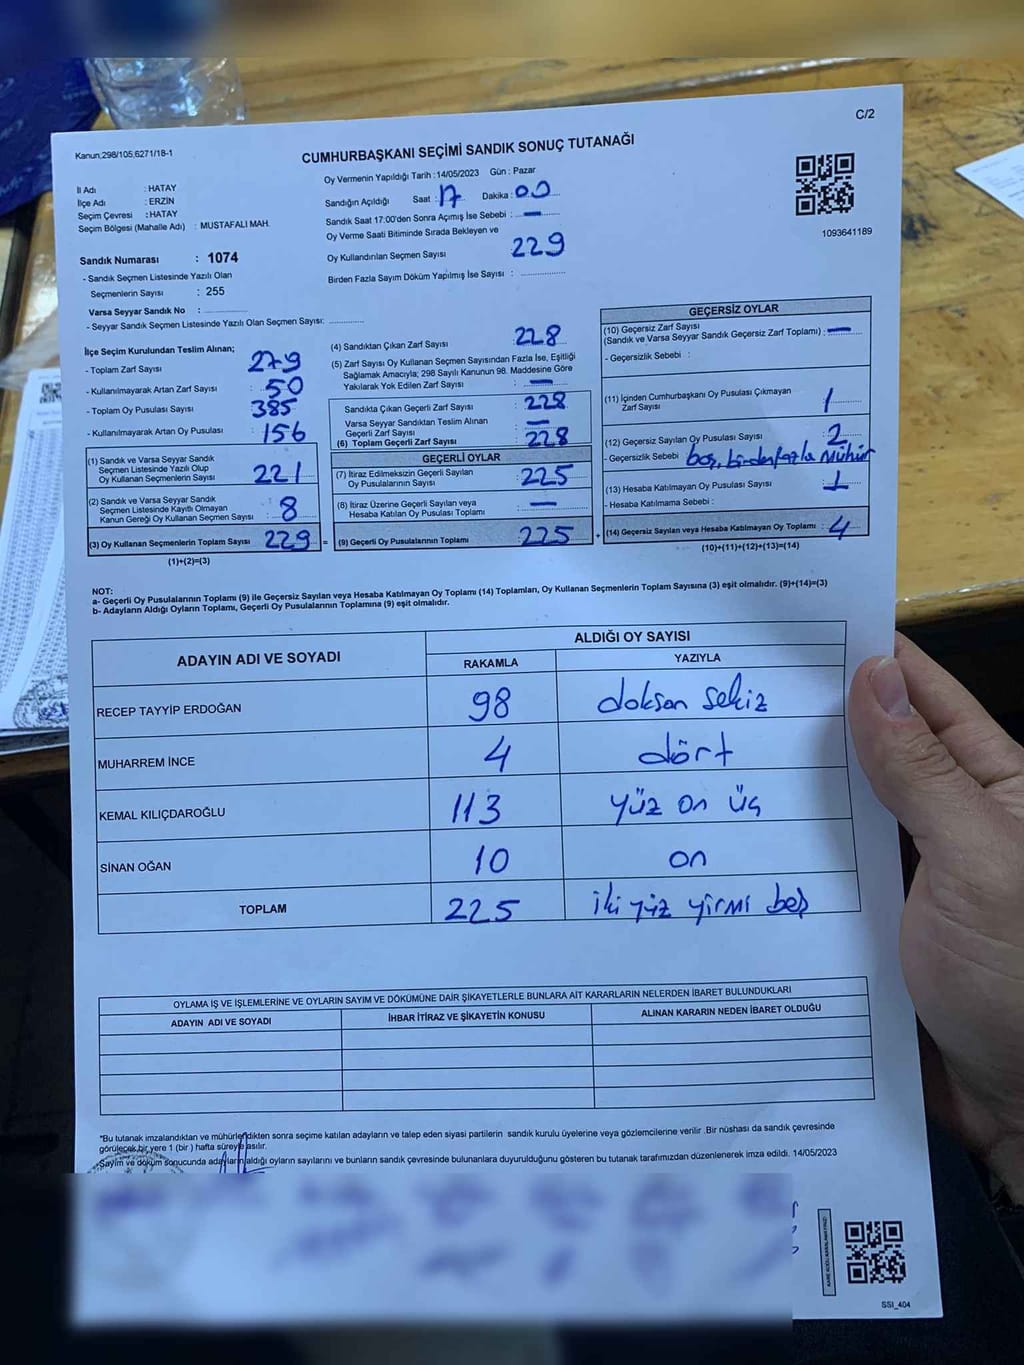 C/2
Kanun;298/105,6271/18-1
CUMHURBAŞKANI SEÇİMİ SANDIK SONUÇ TUTANAĞI
İl Adı : HATAY
İlçe Adı : ERZİN
Seçim Çevresi : HATAY
Seçim Bölgesi (Mahalle Adı) : MUSTAFALI MAH.
Sandık Numarası : 1074
- Sandık Seçmen Listesinde Yazılı Olan
Seçmenlerin Sayısı : 255
Varsa Seyyar Sandık No :
- Seyyar Sandık Seçmen Listesinde Yazılı Olan Seçmen Sayısı:
Oy Vermenin Yapıldığı Tarih : 14/05/2023 Gün : Pazar
Sandığın Açıldığı Saat : 17 Dakika : 00
Sandık Saat 17:00'den Sonra Açımış İse Sebebi : —
Oy Verme Saati Bitiminde Sırada Bekleyen ve
Oy Kullandırılan Seçmen Sayısı 229
Birden Fazla Sayım Döküm Yapılmış İse Sayısı :
1093641189
İlçe Seçim Kurulundan Teslim Alınan;
- Toplam Zarf Sayısı 279
- Kullanılmayarak Artan Zarf Sayısı : 50
- Toplam Oy Pusulası Sayısı 385
- Kullanılmayarak Artan Oy Pusulası : 156
(1) Sandık ve Varsa Seyyar Sandık
Seçmen Listesinde Yazılı Olup
Oy Kullanan Seçmenlerin Sayısı 221
(2) Sandık ve Varsa Seyyar Sandık
Seçmen Listesinde Kayıtlı Olmayan
Kanun Gereği Oy Kullanan Seçmen Sayısı : 8
(3) Oy Kullanan Seçmenlerin Toplam Sayısı 229 =
(1)+(2)=(3)
(4) Sandıktan Çıkan Zarf Sayısı : 228
(5) Zarf Sayısı Oy Kullanan Seçmen Sayısından Fazla İse, Eşitliği
Sağlamak Amacıyla; 298 Sayılı Kanunun 98. Maddesine Göre
Yakılarak Yok Edilen Zarf Sayısı : —
Sandıkta Çıkan Geçerli Zarf Sayısı : 228
Varsa Seyyar Sandıktan Teslim Alınan
Geçerli Zarf Sayısı : —
(6) Toplam Geçerli Zarf Sayısı : 228
GEÇERLİ OYLAR
(7) İtiraz Edilmeksizin Geçerli Sayılan
Oy Pusulalarının Sayısı : 225
(8) İtiraz Üzerine Geçerli Sayılan veya
Hesaba Katılan Oy Pusulası Toplamı : —
(9) Geçerli Oy Pusulalarının Toplamı : 225 +
GEÇERSİZ OYLAR
(10) Geçersiz Zarf Sayısı
(Sandık ve Varsa Seyyar Sandık Geçersiz Zarf Toplamı) : —
- Geçersizlik Sebebi :
(11) İçinden Cumhurbaşkanı Oy Pusulası Çıkmayan
Zarf Sayısı : 1
(12) Geçersiz Sayılan Oy Pusulası Sayısı : 2
- Geçersizlik Sebebi : boş, birden fazla mühür
(13) Hesaba Katılmayan Oy Pusulası Sayısı : 1
- Hesaba Katılmama Sebebi :
(14) Geçersiz Sayılan veya Hesaba Katılmayan Oy Toplamı : 4
(10)+(11)+(12)+(13)=(14)
NOT:
a- Geçerli Oy Pusulalarının Toplamı (9) ile Geçersiz Sayılan veya Hesaba Katılmayan Oy Toplamı (14) Toplamları, Oy Kullanan Seçmenlerin Toplam Sayısına (3) eşit olmalıdır. (9)+(14)=(3)
b- Adayların Aldığı Oyların Toplamı, Geçerli Oy Pusulalarının Toplamına (9) eşit olmalıdır.
ADAYIN ADI VE SOYADI
ALDIĞI OY SAYISI
RAKAMLA YAZIYLA
RECEP TAYYİP ERDOĞAN 98 doksan sekiz
MUHARREM İNCE 4 dört
KEMAL KILIÇDAROĞLU 113 yüz on üç
SİNAN OĞAN 10 on
TOPLAM 225 iki yüz yirmi beş
OYLAMA İŞ VE İŞLEMLERİNE VE OYLARIN SAYIM VE DÖKÜMÜNE DAİR ŞİKAYETLERLE BUNLARA AİT KARARLARIN NELERDEN İBARET BULUNDUKLARI
ADAYIN ADI VE SOYADI İHBAR İTİRAZ VE ŞİKAYETİN KONUSU ALINAN KARARIN NEDEN İBARET OLDUĞU
*Bu tutanak imzalandıktan ve mühürlendikten sonra seçime katılan adayların ve talep eden siyasi partilerin sandık kurulu üyelerine veya gözlemcilerine verilir .Bir nüshası da sandık çevresinde
görülecek bir yere 1 (bir ) hafta süreyle asılır.
Sayım ve döküm sonucunda adayların aldığı oyların sayılarını ve bunların sandık çevresinde bulunanlara duyurulduğunu gösteren bu tutanak tarafımızdan düzenlenerek imza edildi. 14/05/2023
SSI_404